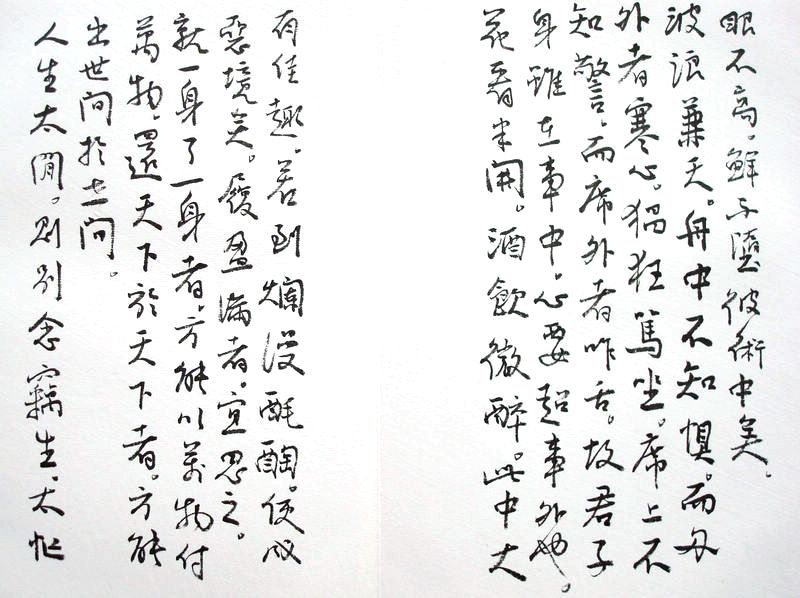 眼不高。鮮不墮彼術中矣。
波浪兼天。舟中不知懼。而舟
外者寒心。猖狂罵坐。席上不
知警。而席外者咋舌。故君子
身雖在事中。心要超事外也。
花看半開。酒飲微醉。此中大
有佳趣。若到爛漫酕醄。便成
惡境矣。履盈滿者。宜思之。
就一身了一身者。方能以萬物付
萬物。還天下於天下者。方能
出世間於世間。
人生太閒。則別念竊生。太忙